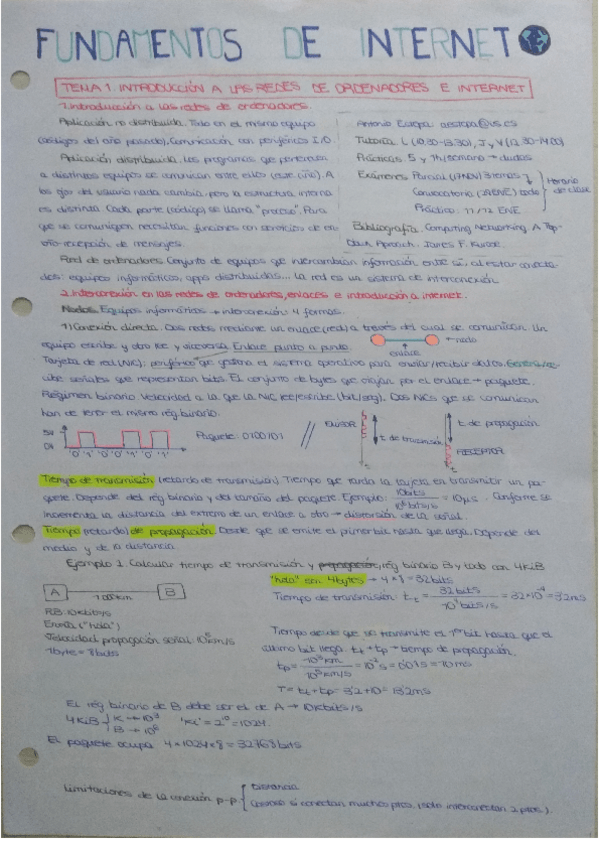 FUNDAMENTOS DE INTERNET
TEMA 1. INTRODUCCIÓN A LAS REDES DE ORDENADORES E INTERNET
1. Introducción a las redes de ordenadores.
Aplicación no distribuida. Todo en el mismo equipo
(códigos del año pasado). Comunicación con periféricos I/O.
Aplicación distribuida. Los programas que pertenecen
a distintos equipos se comunican entre ellos (este año). A
los ojos del usuario nada cambia, pero la estructura interna
es distinta. Cada parte (código) se llama "proceso". Para
que se comuniquen necesitan funciones con servicios de en-
vío-recepción de mensajes.
Antonio Estepa: aestepa@us.es
Tutoría: L (10.30-13.30), J y V (12.30-14.00)
Prácticas: 5 y 7h/semana → dudas
Exámenes: Parcial (17NOV) 3 temas
Convocatoria (29ENE) todo
Práctico: 11/12 ENE
Horario de clase
Bibliografía: Computing Networking. A Top-
Down Approach. James F. Kurose.
Red de ordenadores. Conjunto de equipos que intercambian información entre sí, al estar conecta-
dos: equipos informáticos, apps distribuidas... La red es un sistema de interconexión
2. Interconexión en las redes de ordenadores, enlaces e introducción a internet.
Nodos. Equipos informáticos → interconexión: 4 formas.
1) Conexión directa. Dos nodos mediante un enlace (red) a través del cual se comunican. Un
equipo escribe y otro lee y viceversa. Enlace punto a punto.
nodo
enlace
Tarjeta de red (NIC): periférico que gestiona el sistema operativo para enviar/recibir datos. Genera/re-
cibe señales que representan bits. El conjunto de bytes que viajan por el enlace → paquete.
Régimen binario. Velocidad a la que la NIC lee/escribe (bit/seg). Dos NICs que se comunican
han de tener el mismo rég. binario.
5V
0V
"0" "1" "0" "0" "1" "0" "1"
Paquete: 0100101
EMISOR
t. de transmisión
t
t. de propagación
RECEPTOR
t
Tiempo de transmisión (retardo de transmisión). Tiempo que tarda la tarjeta en transmitir un pa-
quete. Depende del rég. binario y del tamaño del paquete. Ejemplo: 10bits / 10⁶ bits/s = 10µs. Conforme se
incrementa la distancia del extremo de un enlace a otro → distorsión de la señal.
Tiempo (retardo) de propagación. Desde que se emite el primer bit hasta que llega. Depende del
medio y de la distancia.
Ejemplo 1. Calcular tiempo de transmisión y propagación, rég. binario B y todo con 4KiB
A B
1000km
RB: 10Kbit/s
Envía ("hola")
Velocidad propagación señal: 10⁵km/s
1byte = 8bits
"hola" son 4bytes → 4×8 = 32bits
Tiempo de transmisión: t_t = 32bits / 10⁴bits/s = 32×10⁻⁴ = 3'2ms
Tiempo desde que se transmite el 1er bit hasta que el
último bit llega: t_t + t_p → tiempo de propagación.
t_p = 10³km / 10⁵km/s = 10⁻²s = 0'01s = 10ms
T = t_t + t_p = 3'2+10 = 13'2ms
El rég. binario de B debe ser el de A → 10Kbits/s
4KiB { K → 10³
B → 10⁸
"Ki" = 2¹⁰ = 1024.
El paquete ocupa 4×1024×8 = 32768bits
Limitaciones de la conexión p-p { Distancia
Costoso si conectan muchos ptos. (solo interconectan 2 ptos.).